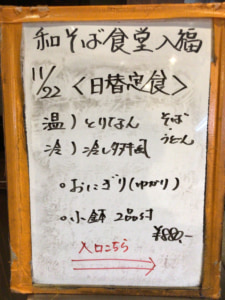 和そば食堂入福
11/22 <日替定食>
温) とりなん そば
冷) 冷し ・うどん
○おにぎり(ゆかり)
○小鉢 2品付
¥880.-
入口こちら